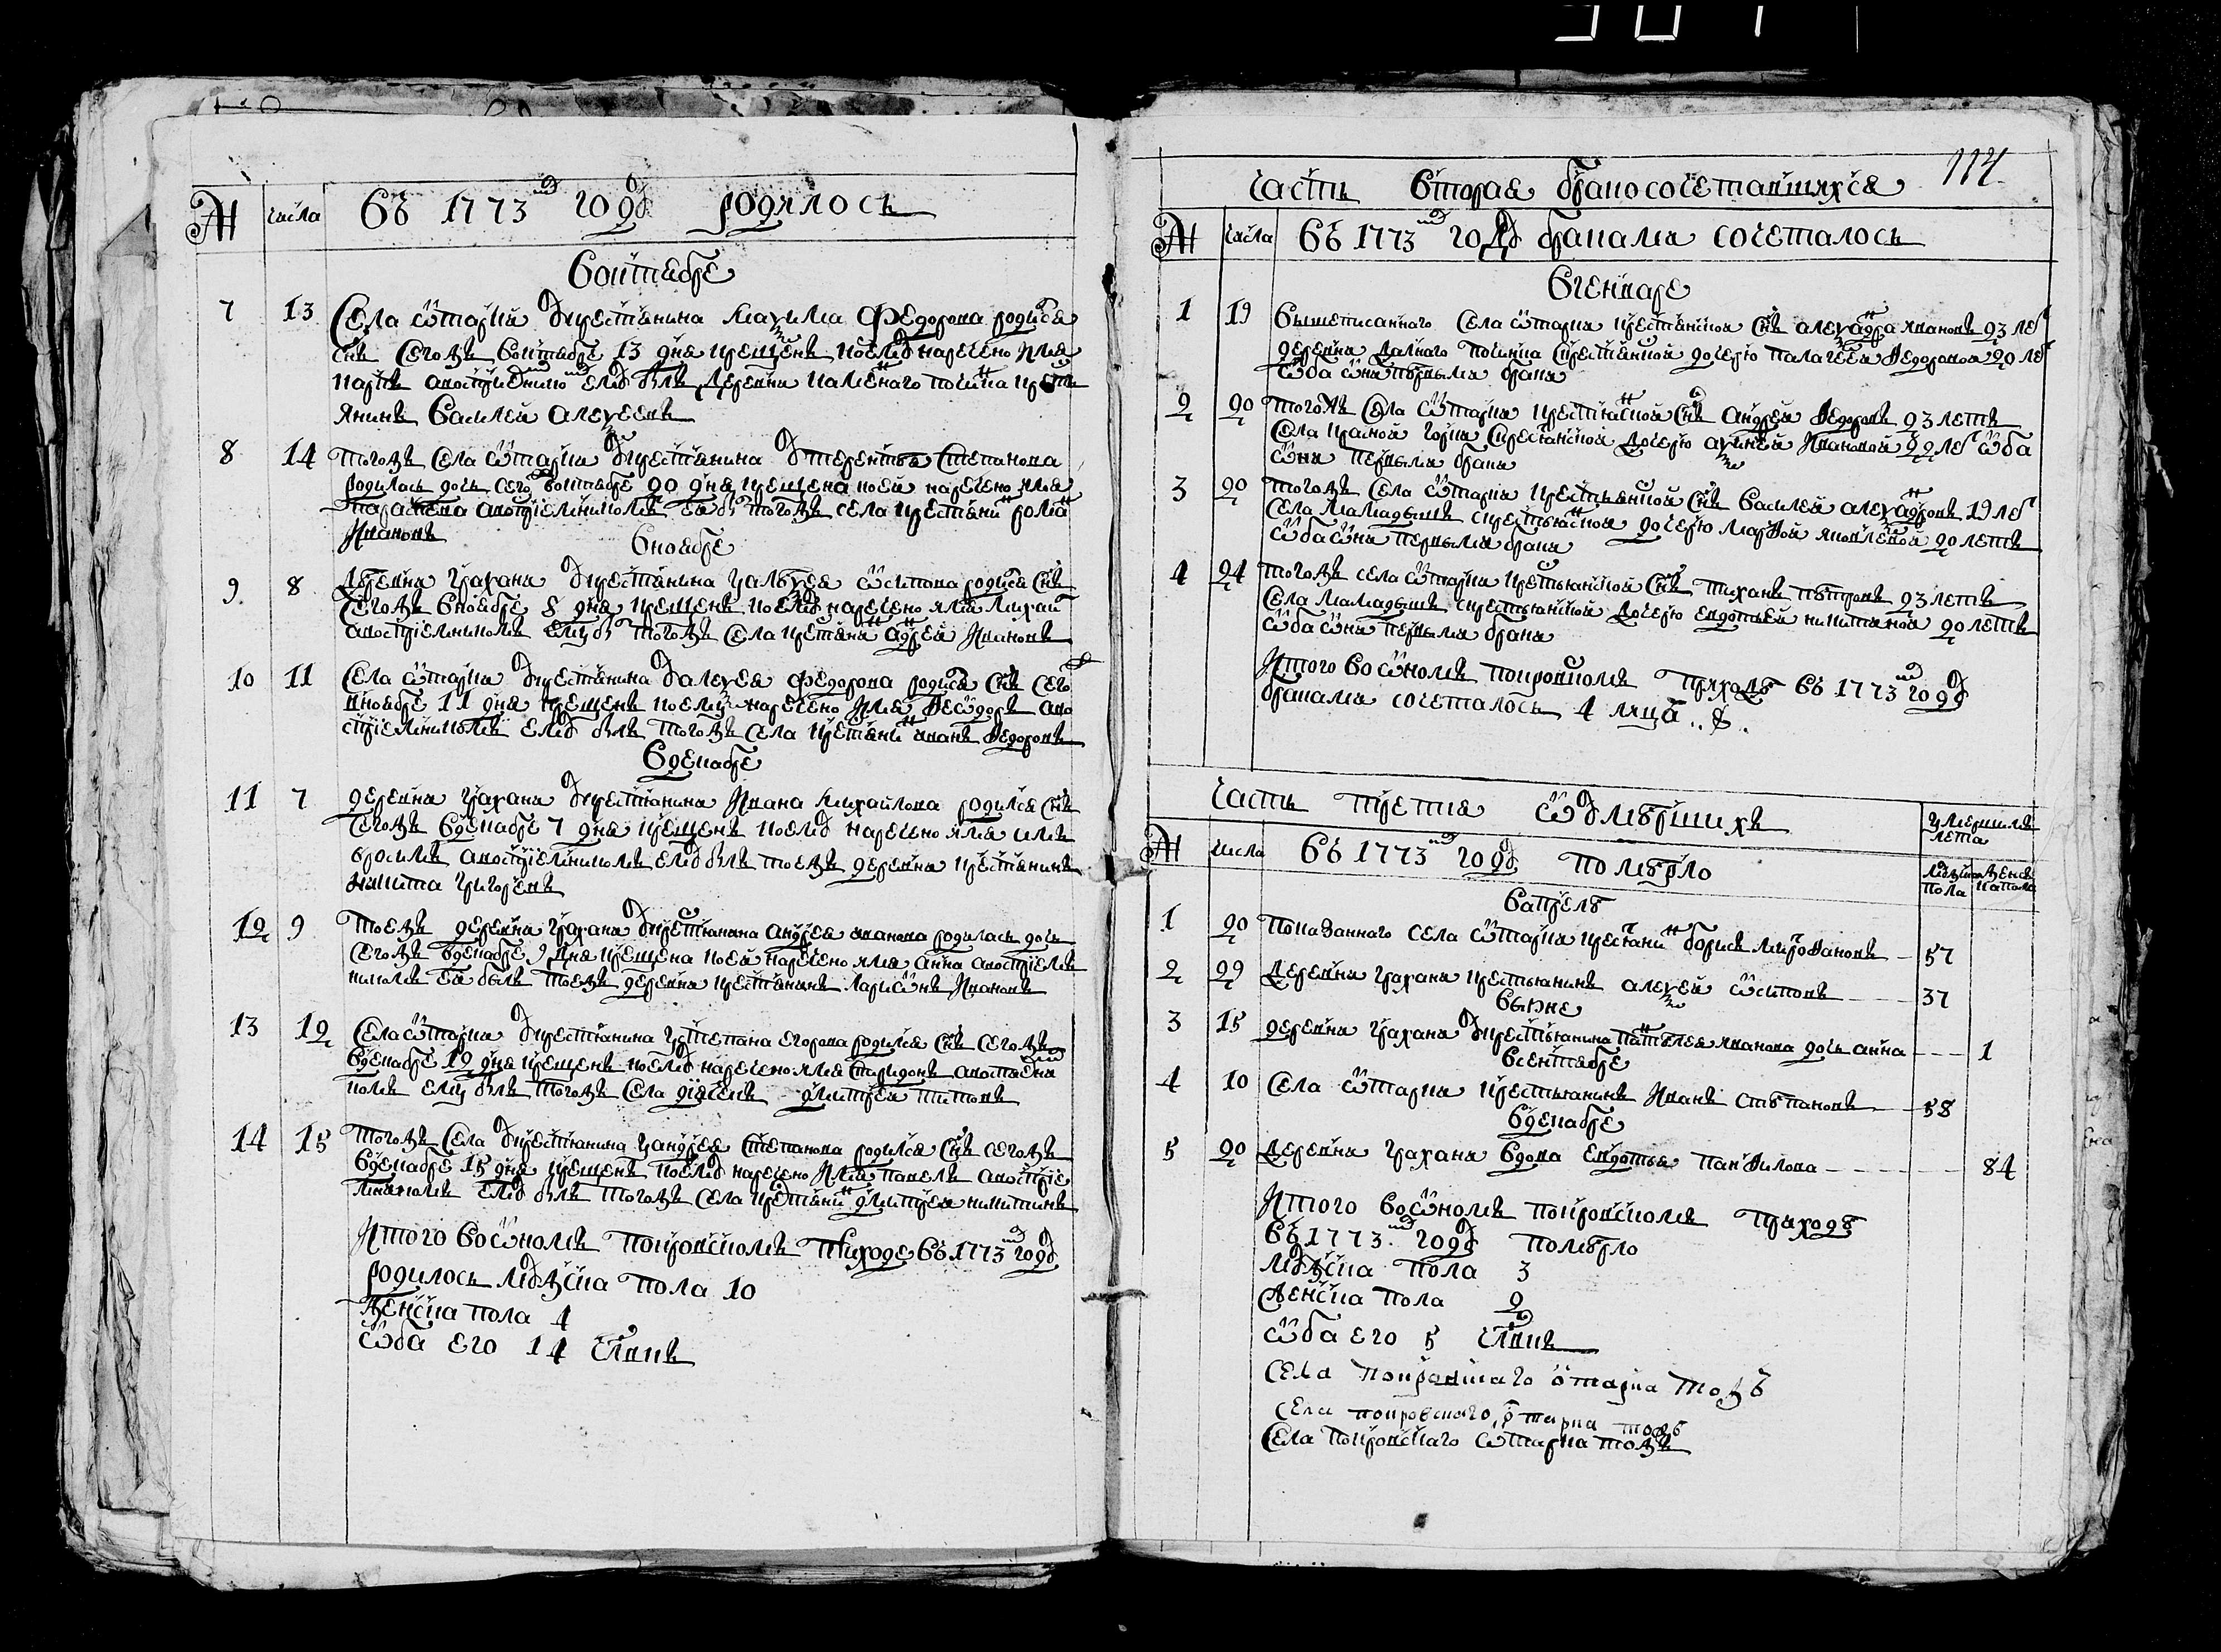 № числа Въ 1773м году родилось
Воктябре
7 13 Села Отарки у крестьянина максима Федорова родился
снъ Сегожъ воктябре 13 дня крещенъ коему наречено имя
карпъ апост приемником ему былъ деревни каменого починка крест
янинъ василей алексеевъ
8 14 тогожъ Села Отарки у крестьянина у терентья Степанова
родилась дочь сего воктябре 20 дня крещена коей наречено имя
параскева апостриемникомъ ей бы тогожъ села крестяни рома
Ивановъ
Вноябре
9 8 Деревни Грахани у крестьянина у алексея Осипова родися снъ
Сегожъ вноябре 8 дня крещенъ коему наречено имя михаи
апостриемникомъ ему бы тогожъ Села крестяни андрей Ивановъ
10 11 Села Отарки у крестьянина у алексея федорова родися снъ сего
вноябре 11 дня крещенъ коему наречено имя Феодоръ апо
стриемникомъ ему былъ тогожъ Села крестяни иванъ Федоровъ
Вдекабре
11 7 деревни Грахани у крестьянина Ивана михайлова родился снъ
Сегожъ вдекабре 7 дня крещенъ коему наречено имя
апостриемникомъ ему былъ тоежъ деревни крестянинъ
никита григоревъ
12 9 тоежъ деревни Грахани у крестьянина андрея иванова родилась дочь
Сегожъ вдекабре 9 дня крещена коей наречено имя анна апостриемъ
никомъ ей былъ тоежъ деревни крестянинъ Ларионъ Ивановъ
13 12 Села Отарки у крестьянина устепана егорова родился снъ Сегожъ
вдекабре 12 дня крещенъ коему наречено имя Спиридонъ
комъ ему былъ тогожъ Села дьячекъ дмитрей титовъ
14 15 тогожъ Села у крестьянина уандрея Степанова родился снъ сегожъ
вдекабре 15 дня крещенъ коему наречено Имя павелъ апостприе
мникомъ ему былъ тогожъ Села крестяни дмитрей никитинъ
Итого во ономъ покровскомъ приходе въ 1773м году
родилось мужска пола 10
женска пола 4
Обоего 14 члвкъ
114
Часть вторая бракосочетавшихся
№ числа Въ 1773м году браками сочеталось
Вгенваре
1 19 Вышеписанного Села Отарки крестянской снъ александра ивановъ 23 ле
деревни Дального починка скрестянской дочерю палагеей Федоровой 20 ле
оба они первыми браки
2 20 тогожъ Села Отарки крестянской снъ андрей Федоровъ 23 летъ
Села красной горки скрестянской дочерю аксиньей Ивановой 22 ле оба
они первыми браки
3 20 тогожъ Села Отарки крестьянской снъ василей александровъ 19 ле
Села мамадышъ скрестьянской дочерю марфой яковлевой 20 летъ
оба они первыми браки
4 24 тогожъ села Отарки крестьянской снъ тиханъ петровъ 23 летъ
Села мамадышъ скрестьянской дочерю евдотьей никитиной 20 летъ
оба они первыми браки
Итого во ономъ покровскомъ приходѣ въ 1773м году
браками сочеталось 4 лица
Часть третия Оумѣршихъ умершимъ лета
№ числа Въ 1773м году померло мужска пола женска пола
Вапреле
1 20 Показанного села Отарки крестяни борисъ митрофановъ 57
2 29 деревни Грахани крестьянинъ алексей Осиповъ 37
Выюне
3 15 деревни Грахани у крестьянина пантелея иванова дочь анна 1
Всентябре
4 10 Села Отарки крестьянинъ Иванъ степановъ 58
Вдекабре
5 20 Деревни Грахани вдова Евдотья панфилова 84
Итого во ономъ покровскомъ приходѣ
въ 1773м году померло
мужска пола 3
женска пола 2
обоего 5 члвкъ
Села покровскаго отарка тожъ
Села покровскаго отарка тожъ
Села покровскаго Отарка тожъ